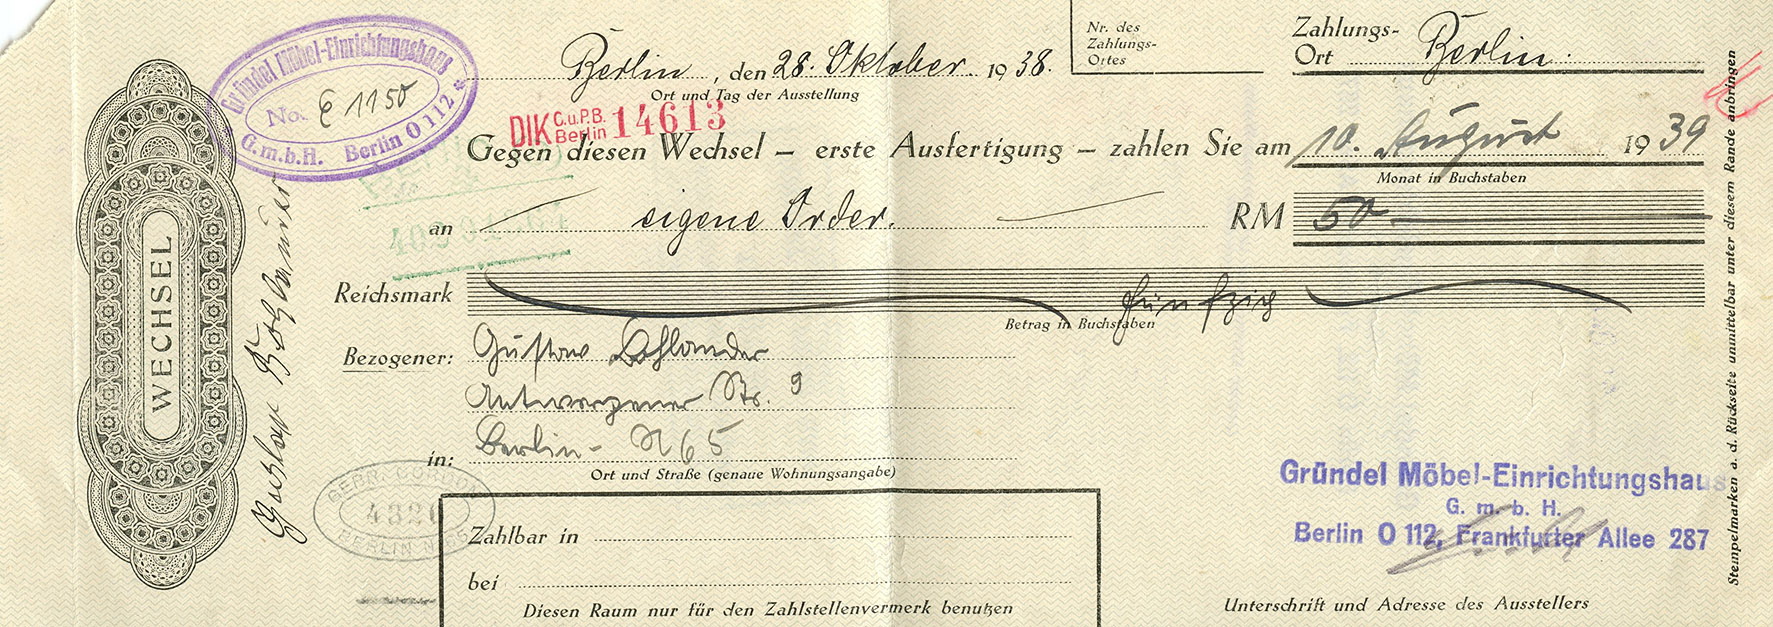 Gründel Möbel-Einrichtungshaus
No. E 1150
G.m.b.H. Berlin O 112
Berlin, den 28. Oktober 1938.
Ort und Tag der Ausstellung
Nr. des
Zahlungs-
Ortes
Zahlungs-
Ort Berlin.
DIK C.u.P.B.
Berlin 14613
Gegen diesen Wechsel – erste Ausfertigung – zahlen Sie am 10. August 1939
Monat in Buchstaben
an eigene Order. RM 50
Reichsmark fünfzig
Betrag in Buchstaben
Bezogener: Gustav Bohlander
Antwerpener Str. 9
in: Berlin - N 65
Ort und Straße (genaue Wohnungsangabe)
WECHSEL
Gustav Bohlander
GEBR. GORDON
4320
BERLIN N
Zahlbar in
bei
Diesen Raum nur für den Zahlstellenvermerk benutzen
Gründel Möbel-Einrichtungshaus
G. m. b. H.
Berlin O 112, Frankfurter Allee 287
Unterschrift und Adresse des Ausstellers
Stempelmarken a. d. Rückseite unmittelbar unter diesem Rande anbringen